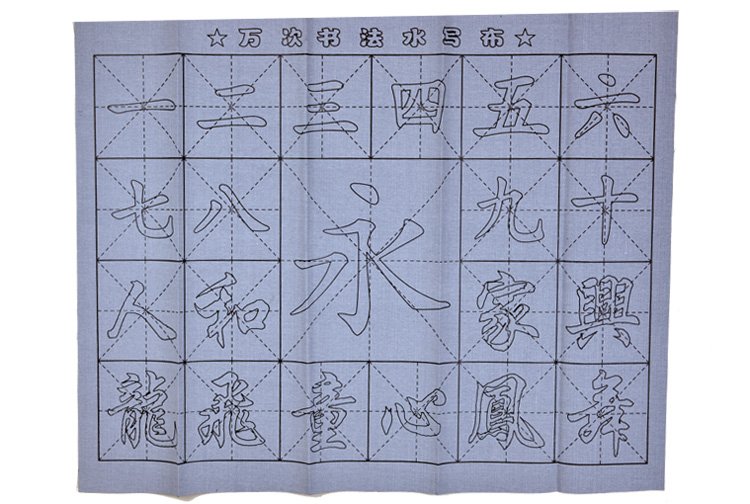 ☆万次书法水写布☆
一二三四五六
七八永九十
人和家興
龍飛童心鳳舞